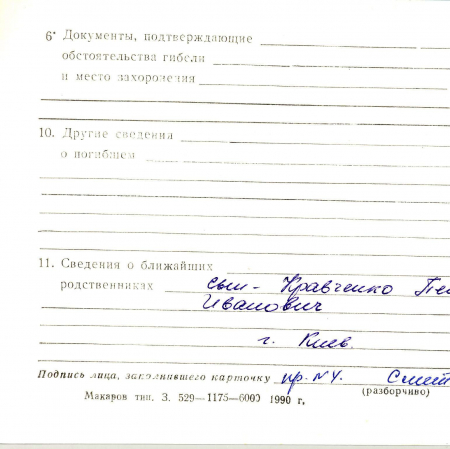 6· Документы, подтверждающие
обстоятельства гибели
и место захоронения
10. Другие сведения
о погибшем
11. Сведения о ближайших
родственниках сын - Кравченко
Иванович
г. Киев.
Подпись лица, заполнившего карточку пр. №4.
(разборчиво)
Макаров тип. З. 529—1175—6000 1990 г.